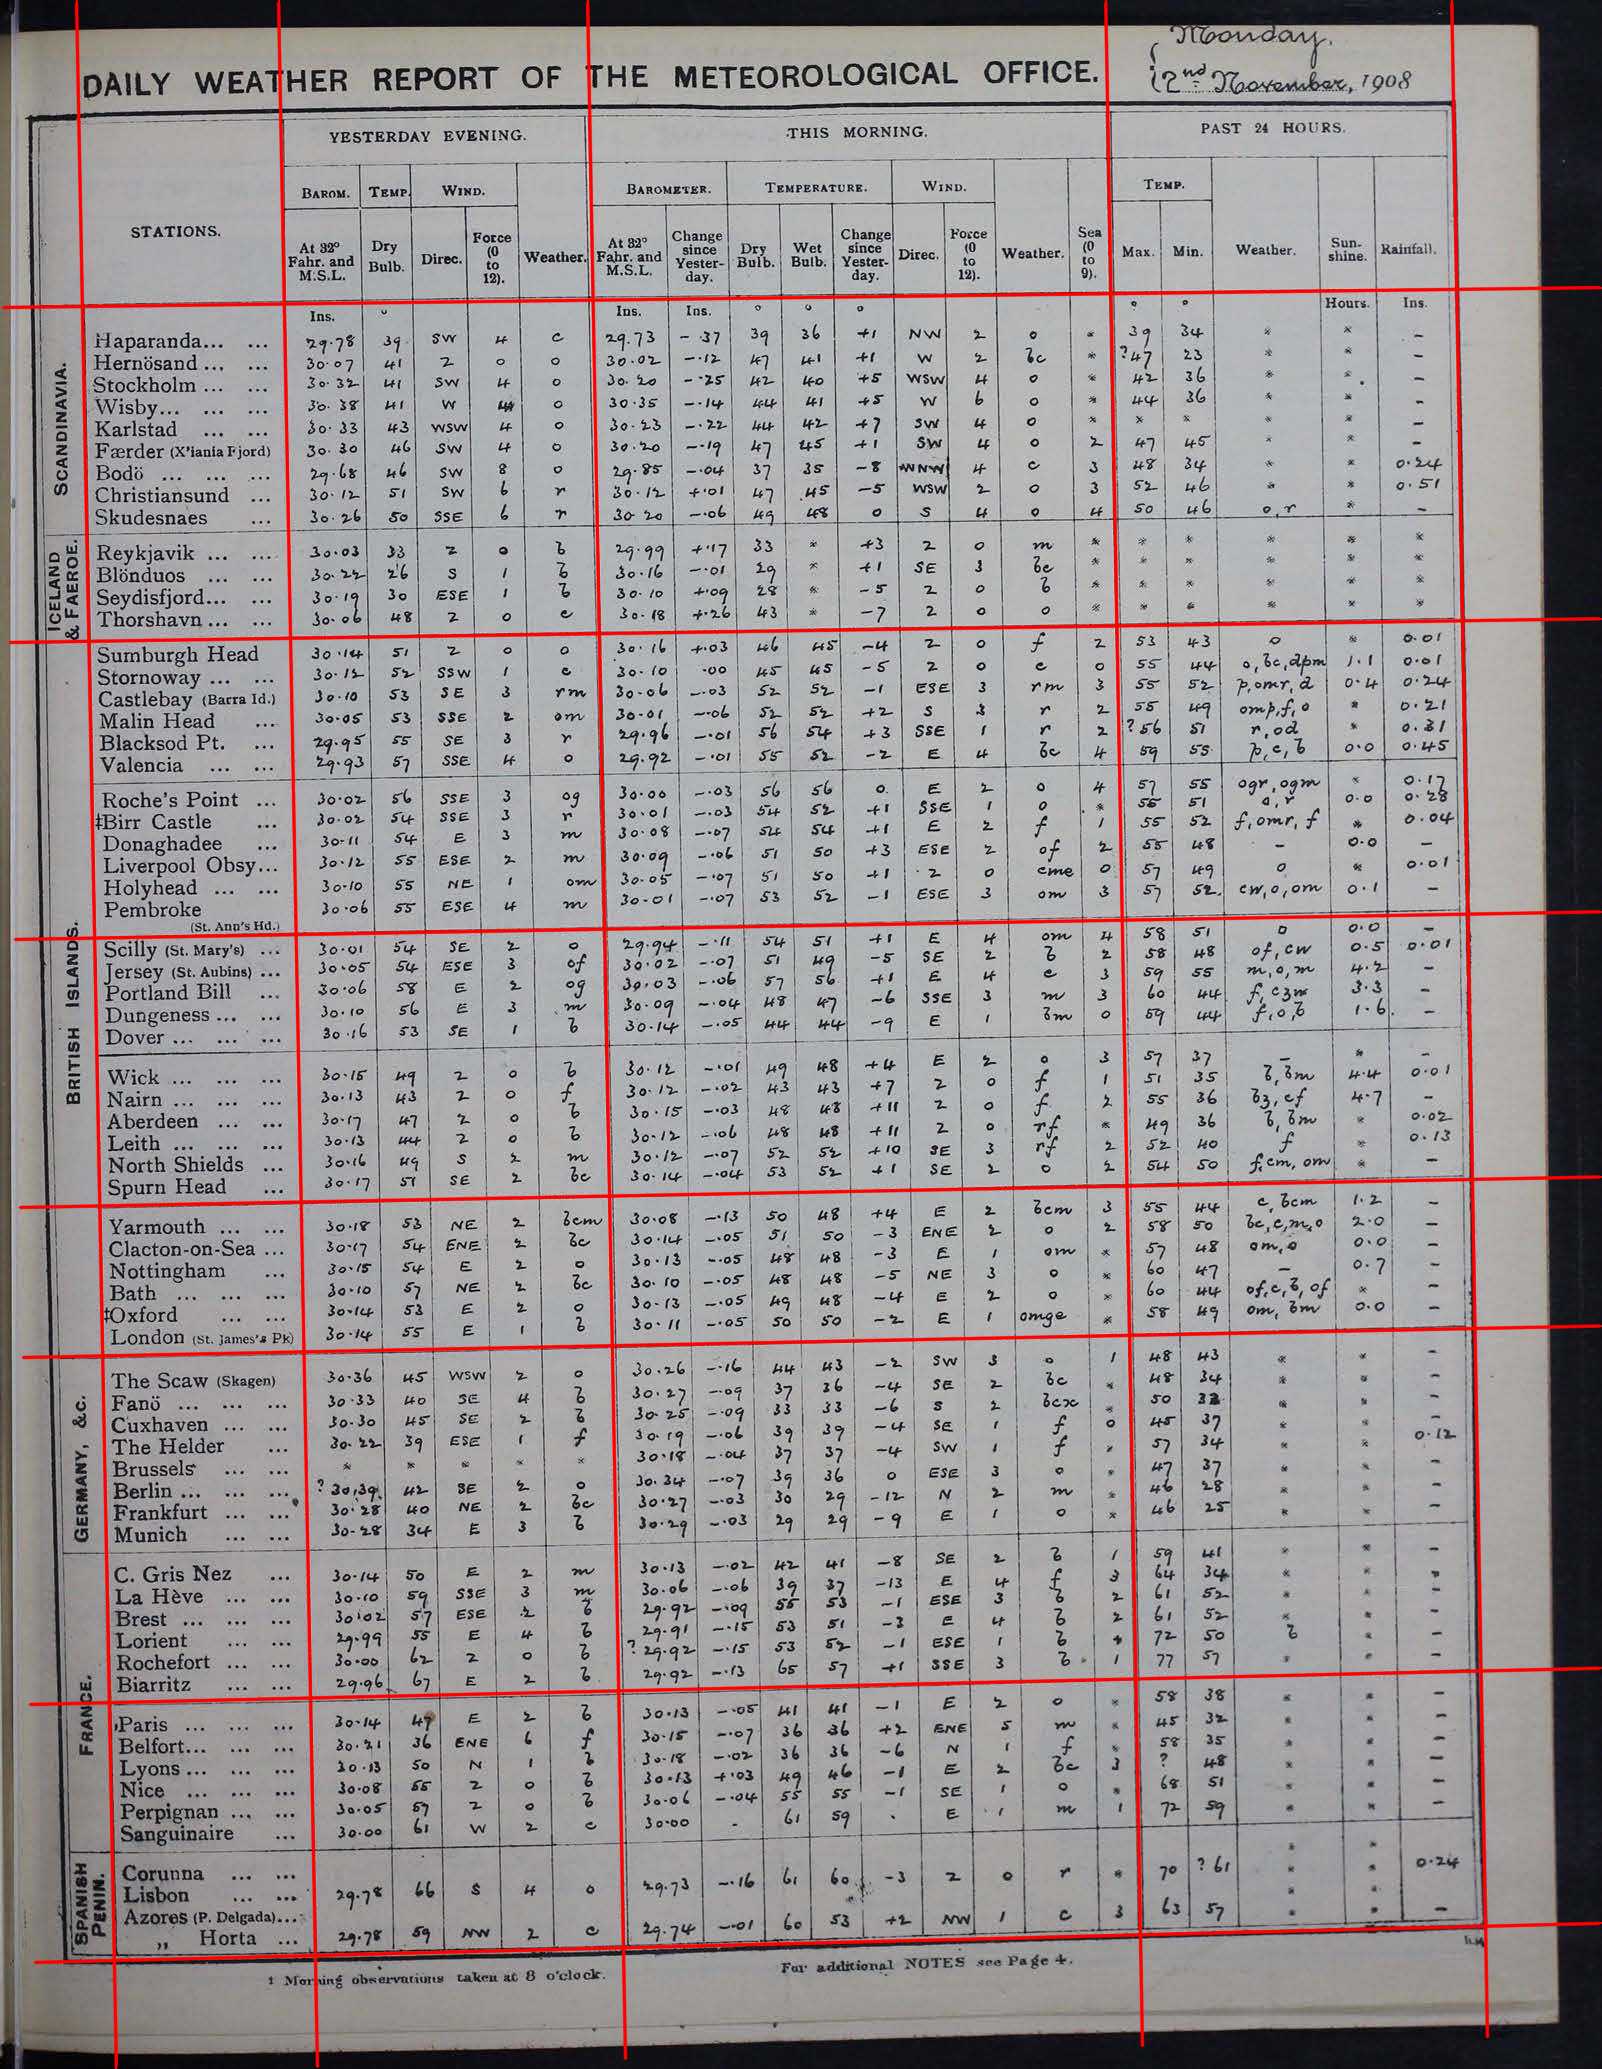 Monday,
DAILY WEATHER REPORT OF THE METEOROLOGICAL OFFICE. 2nd November, 1908
YESTERDAY EVENING. THIS MORNING. PAST 24 HOURS.
STATIONS. BAROM. TEMP. WIND. Weather. BAROMETER. TEMPERATURE. WIND. Weather. Sea (0 to 9). TEMP. Weather. Sunshine. Rainfall.
At 32° Fahr. and M.S.L. Dry Bulb. Direc. Force (0 to 12). At 32° Fahr. and M.S.L. Change since Yesterday. Dry Bulb. Wet Bulb. Change since Yesterday. Direc. Force (0 to 12). Max. Min.
Ins. ° Ins. Ins. ° ° ° ° ° Hours. Ins.
SCANDINAVIA.
Haparanda... ... 29.78 39 SW 4 c 29.73 -.37 39 36 +1 NW 2 o * 39 34 * * -
Hernösand ... ... 30.07 41 Z 0 o 30.02 -.12 47 41 +1 W 2 bc * ?47 23 * * -
Stockholm ... ... 30.32 41 SW 4 o 30.20 -.25 42 40 +5 WSW 4 o * 42 36 * * -
Wisby... ... ... 30.38 41 W o 30.35 -.14 44 41 +5 W 6 o * 44 36 * * -
Karlstad ... ... 30.33 43 WSW 4 o 30.23 -.22 44 42 +7 SW 4 o * * * * * -
Færder (X'iania Fjord) 30.30 46 SW 4 o 30.20 -.19 47 45 +1 SW 4 o 2 47 45 * * -
Bodö ... ... ... 29.68 46 SW 8 o 29.85 -.04 37 35 -8 WNW 4 c 3 48 34 * * 0.24
Christiansund ... 30.12 51 SW 6 r 30.12 +.01 47 45 -5 WSW 2 o 3 52 46 * * 0.51
Skudesnaes ... 30.26 50 SSE 6 r 30.20 -.06 49 48 0 S 4 o 4 50 46 o,r * -
ICELAND & FAEROE.
Reykjavik ... ... 30.03 33 Z 0 b 29.99 +.17 33 * +3 Z 0 m * * * * * *
Blönduos ... ... 30.22 26 S 1 b 30.16 -.01 29 * +1 SE 3 bc * * * * * *
Seydisfjord... ... 30.19 30 ESE 1 b 30.10 +.09 28 * -5 Z 0 b * * * * * *
Thorshavn ... ... 30.06 48 Z 0 c 30.18 +.26 43 * -7 Z 0 o * * * * * *
BRITISH ISLANDS.
Sumburgh Head 30.14 51 Z 0 o 30.16 +.03 46 45 -4 Z 0 f 2 53 43 o * 0.01
Stornoway ... ... 30.12 52 SSW 1 c 30.10 .00 45 45 -5 Z 0 c 0 55 44 o,bc,dpm 1.1 0.01
Castlebay (Barra Id.) 30.10 53 SE 3 rm 30.06 -.03 52 52 -1 ESE 3 rm 3 55 52 p,omr,d 0.4 0.24
Malin Head ... 30.05 53 SSE 2 om 30.01 -.06 52 52 +2 S 3 r 2 55 49 omp,f,o * 0.21
Blacksod Pt. ... 29.95 55 SE 3 r 29.96 -.01 56 54 +3 SSE 1 r 2 ?56 51 r,od * 0.31
Valencia ... ... 29.93 57 SSE 4 o 29.92 -.01 55 52 -2 E 4 bc 4 59 55 p,c,b 0.0 0.45
Roche's Point ... 30.02 56 SSE 3 og 30.00 -.03 56 56 0 E 2 o 4 57 55 ogr,ogm * 0.17
‡Birr Castle ... 30.02 54 SSE 3 r 30.01 -.03 54 52 +1 SSE 1 o * 55 51 o,r 0.0 0.28
Donaghadee ... 30.11 54 E 3 m 30.08 -.07 54 54 +1 E 2 f 1 55 52 f,omr,f * 0.04
Liverpool Obsy... 30.12 55 ESE 2 m 30.09 -.06 51 50 +3 ESE 2 of 2 55 48 - 0.0 -
Holyhead ... ... 30.10 55 NE 1 om 30.05 -.07 51 50 +1 Z 0 cme 0 57 49 o * 0.01
Pembroke (St. Ann's Hd.) 30.06 55 ESE 4 m 30.01 -.07 53 52 -1 ESE 3 om 3 57 52 cw,o,om 0.1 -
Scilly (St. Mary's) ... 30.01 54 SE 2 o 29.94 -.11 54 51 +1 E 4 om 4 58 51 o 0.0 -
Jersey (St. Aubins) ... 30.05 54 ESE 3 of 30.02 -.07 51 49 -5 SE 2 b 2 58 48 of,cw 0.5 0.01
Portland Bill ... 30.06 58 E 2 og 30.03 -.06 57 56 +1 E 4 c 3 59 55 m,o,m 4.2 -
Dungeness ... ... 30.10 56 E 3 m 30.09 -.04 48 47 -6 SSE 3 m 3 60 44 3.3 -
Dover ... ... ... 30.16 53 SE 1 b 30.14 -.05 44 44 -9 E 1 bm 0 59 44 f,o,b 1.6 -
Wick ... ... ... 30.15 49 Z 0 b 30.12 -.01 49 48 +4 E 2 o 3 57 37 - * -
Nairn ... ... ... 30.13 43 Z 0 f 30.12 -.02 43 43 +7 Z 0 f 1 51 35 b,bm 4.4 0.01
Aberdeen ... ... 30.17 47 Z 0 b 30.15 -.03 48 48 +11 Z 0 f 2 55 36 bz,cf 4.7 -
Leith ... ... ... 30.13 44 Z 0 b 30.12 -.06 48 48 +11 Z 0 rf * 49 36 b,bm * 0.02
North Shields ... 30.16 49 S 2 m 30.12 -.07 52 52 +10 SE 3 rf 2 52 40 f * 0.13
Spurn Head ... 30.17 51 SE 2 bc 30.14 -.04 53 52 +1 SE 2 o 2 54 50 f,cm,om * -
Yarmouth ... ... 30.18 53 NE 2 bcm 30.08 -.13 50 48 +4 E 2 bcm 3 55 44 c,bcm 1.2 -
Clacton-on-Sea ... 30.17 54 ENE 2 bc 30.14 -.05 51 50 -3 ENE 2 o 2 58 50 bc,c,m,o 2.0 -
Nottingham ... 30.15 54 E 2 o 30.13 -.05 48 48 -3 E 1 om * 57 48 om,o 0.0 -
Bath ... ... ... 30.10 57 NE 2 bc 30.10 -.05 48 48 -5 NE 3 o * 60 47 - 0.7 -
‡Oxford ... ... 30.14 53 E 2 o 30.13 -.05 49 48 -4 E 2 o * 60 44 of,c,b,of * -
London (St. James's Pk) 30.14 55 E 1 b 30.11 -.05 50 50 -2 E 1 omge * 58 49 om,bm 0.0 -
GERMANY, &c.
The Scaw (Skagen) 30.36 45 WSW 2 o 30.26 -.16 44 43 -2 SW 3 o 1 48 43 * * -
Fanö ... ... ... 30.33 40 SE 4 b 30.27 -.09 37 36 -4 SE 2 bc * 48 34 * * -
Cuxhaven ... ... 30.30 45 SE 2 b 30.25 -.09 33 33 -6 S 2 bcx * 50 * * -
The Helder ... 30.22 39 ESE 1 f 30.19 -.06 39 39 -4 SE 1 f 0 45 37 * * -
Brussels ... ... * * * * * 30.18 -.04 37 37 -4 SW 1 f * 57 34 * * 0.12
Berlin ... ... ... ?30.39 42 SE 2 o 30.34 -.07 39 36 0 ESE 3 o * 47 37 * * -
Frankfurt ... ... 30.28 40 NE 2 bc 30.27 -.03 30 29 -12 N 2 m * 46 28 * * -
Munich ... ... 30.28 34 E 3 b 30.29 -.03 29 29 -9 E 1 o * 46 25 * * -
FRANCE.
C. Gris Nez ... 30.14 50 E 2 m 30.13 -.02 42 41 -8 SE 2 b 1 59 41 * * -
La Hève ... ... 30.10 59 SSE 3 m 30.06 -.06 39 37 -13 E 4 f 3 64 34 * * -
Brest ... ... ... 30.02 57 ESE 2 b 29.92 -.09 55 53 -1 ESE 3 b 2 61 52 * * -
Lorient ... ... 29.99 55 E 4 b 29.91 -.15 53 51 -3 E 4 b 2 61 52 * * -
Rochefort ... ... 30.00 62 Z 0 b ?29.92 -.15 53 52 -1 ESE 1 b * 72 50 b * -
Biarritz ... ... 29.96 67 E 2 b 29.92 -.13 65 57 +1 SSE 3 b 1 77 57 * * -
Paris ... ... ... 30.14 47 E 2 b 30.13 -.05 41 41 -1 E 2 o * 58 38 * * -
Belfort... ... ... 30.21 36 ENE 6 f 30.15 -.07 36 36 +2 ENE 5 m * 45 32 * * -
Lyons ... ... ... 30.13 50 N 1 b 30.18 -.02 36 36 -6 N 1 f * 58 35 * * -
Nice ... ... ... 30.08 55 Z 0 b 30.13 +.03 49 46 -1 E 2 bc 3 ? 48 * * -
Perpignan ... ... 30.05 57 Z 0 b 30.06 -.04 55 55 -1 SE 1 o * 68 51 * * -
Sanguinaire ... 30.00 61 W 2 c 30.00 - 61 59 . E 1 m 1 72 59 * * -
SPANISH PENIN.
Corunna ... ...
Lisbon ... ... 29.78 66 S 4 o 29.73 -.16 61 60 -3 Z 0 r * 70 ?61 * * 0.24
Azores (P. Delgada)...
„ Horta ... 29.78 59 NW 2 c 29.74 -.01 60 53 +2 NW 1 c 3 63 57 * * -
‡ Morning observations taken at 8 o'clock. For additional NOTES see Page 4.